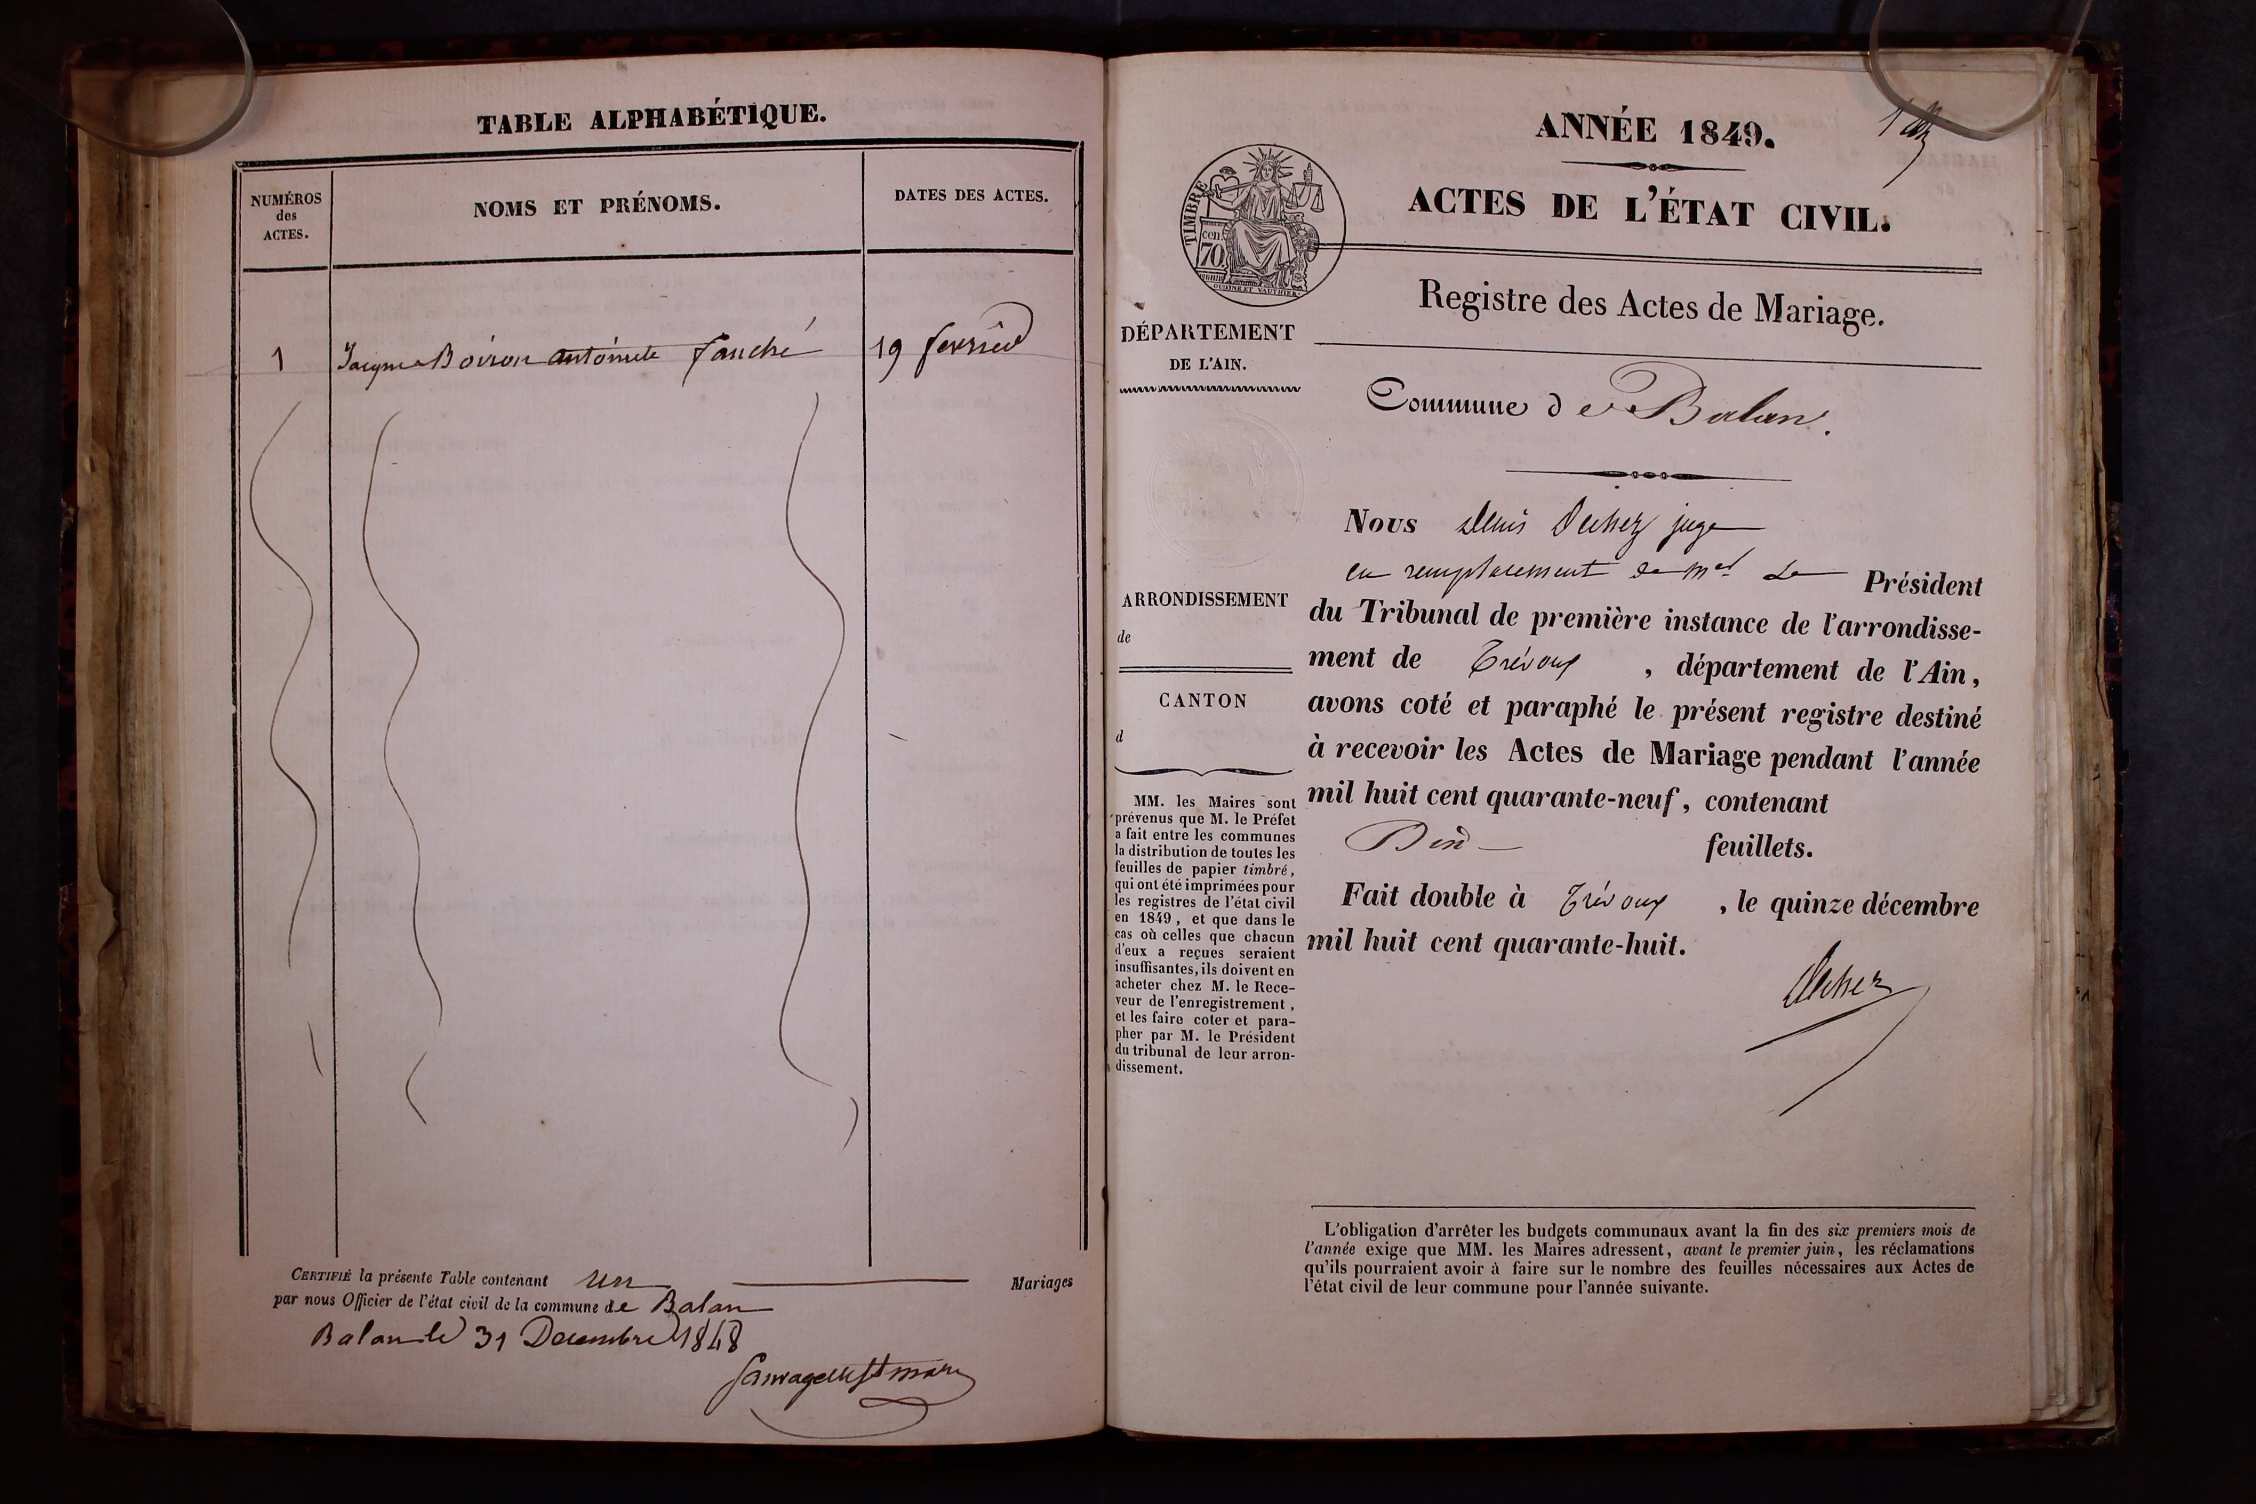 TABLE ALPHABÉTIQUE.
NUMÉROS
des
ACTES.
NOMS ET PRÉNOMS.
DATES DES ACTES.
1 Jacques Boiron antoinette fauché 19 fevrier
CERTIFIÉ la présente Table contenant un Mariages
par nous Officier de l'état civil de la commune de Balan
Balan le 31 Decembre 1848
ANNÉE 1849.
ACTES DE L'ÉTAT CIVIL.
TIMBRE
cen
70
OUDINE ET VAUTHIER
Registre des Actes de Mariage.
DÉPARTEMENT
DE L'AIN.
Commune de Balan.
Nous Denis juge
en remplacement de Mr Le Président
du Tribunal de première instance de l'arrondisse-
ment de Trévoux , département de l'Ain,
avons coté et paraphé le présent registre destiné
à recevoir les Actes de Mariage pendant l'année
mil huit cent quarante-neuf, contenant
feuillets.
Fait double à Trévoux , le quinze décembre
mil huit cent quarante-huit.
ARRONDISSEMENT
de
CANTON
d
MM. les Maires sont
prévenus que M. le Préfet
a fait entre les communes
la distribution de toutes les
feuilles de papier timbré,
qui ont été imprimées pour
les registres de l'état civil
en 1849, et que dans le
cas où celles que chacun
d'eux a reçues seraient
insuffisantes, ils doivent en
acheter chez M. le Rece-
veur de l'enregistrement,
et les faire coter et para-
pher par M. le Président
du tribunal de leur arron-
dissement.
L'obligation d'arrêter les budgets communaux avant la fin des six premiers mois de
l'année exige que MM. les Maires adressent, avant le premier juin, les réclamations
qu'ils pourraient avoir à faire sur le nombre des feuilles nécessaires aux Actes de
l'état civil de leur commune pour l'année suivante.